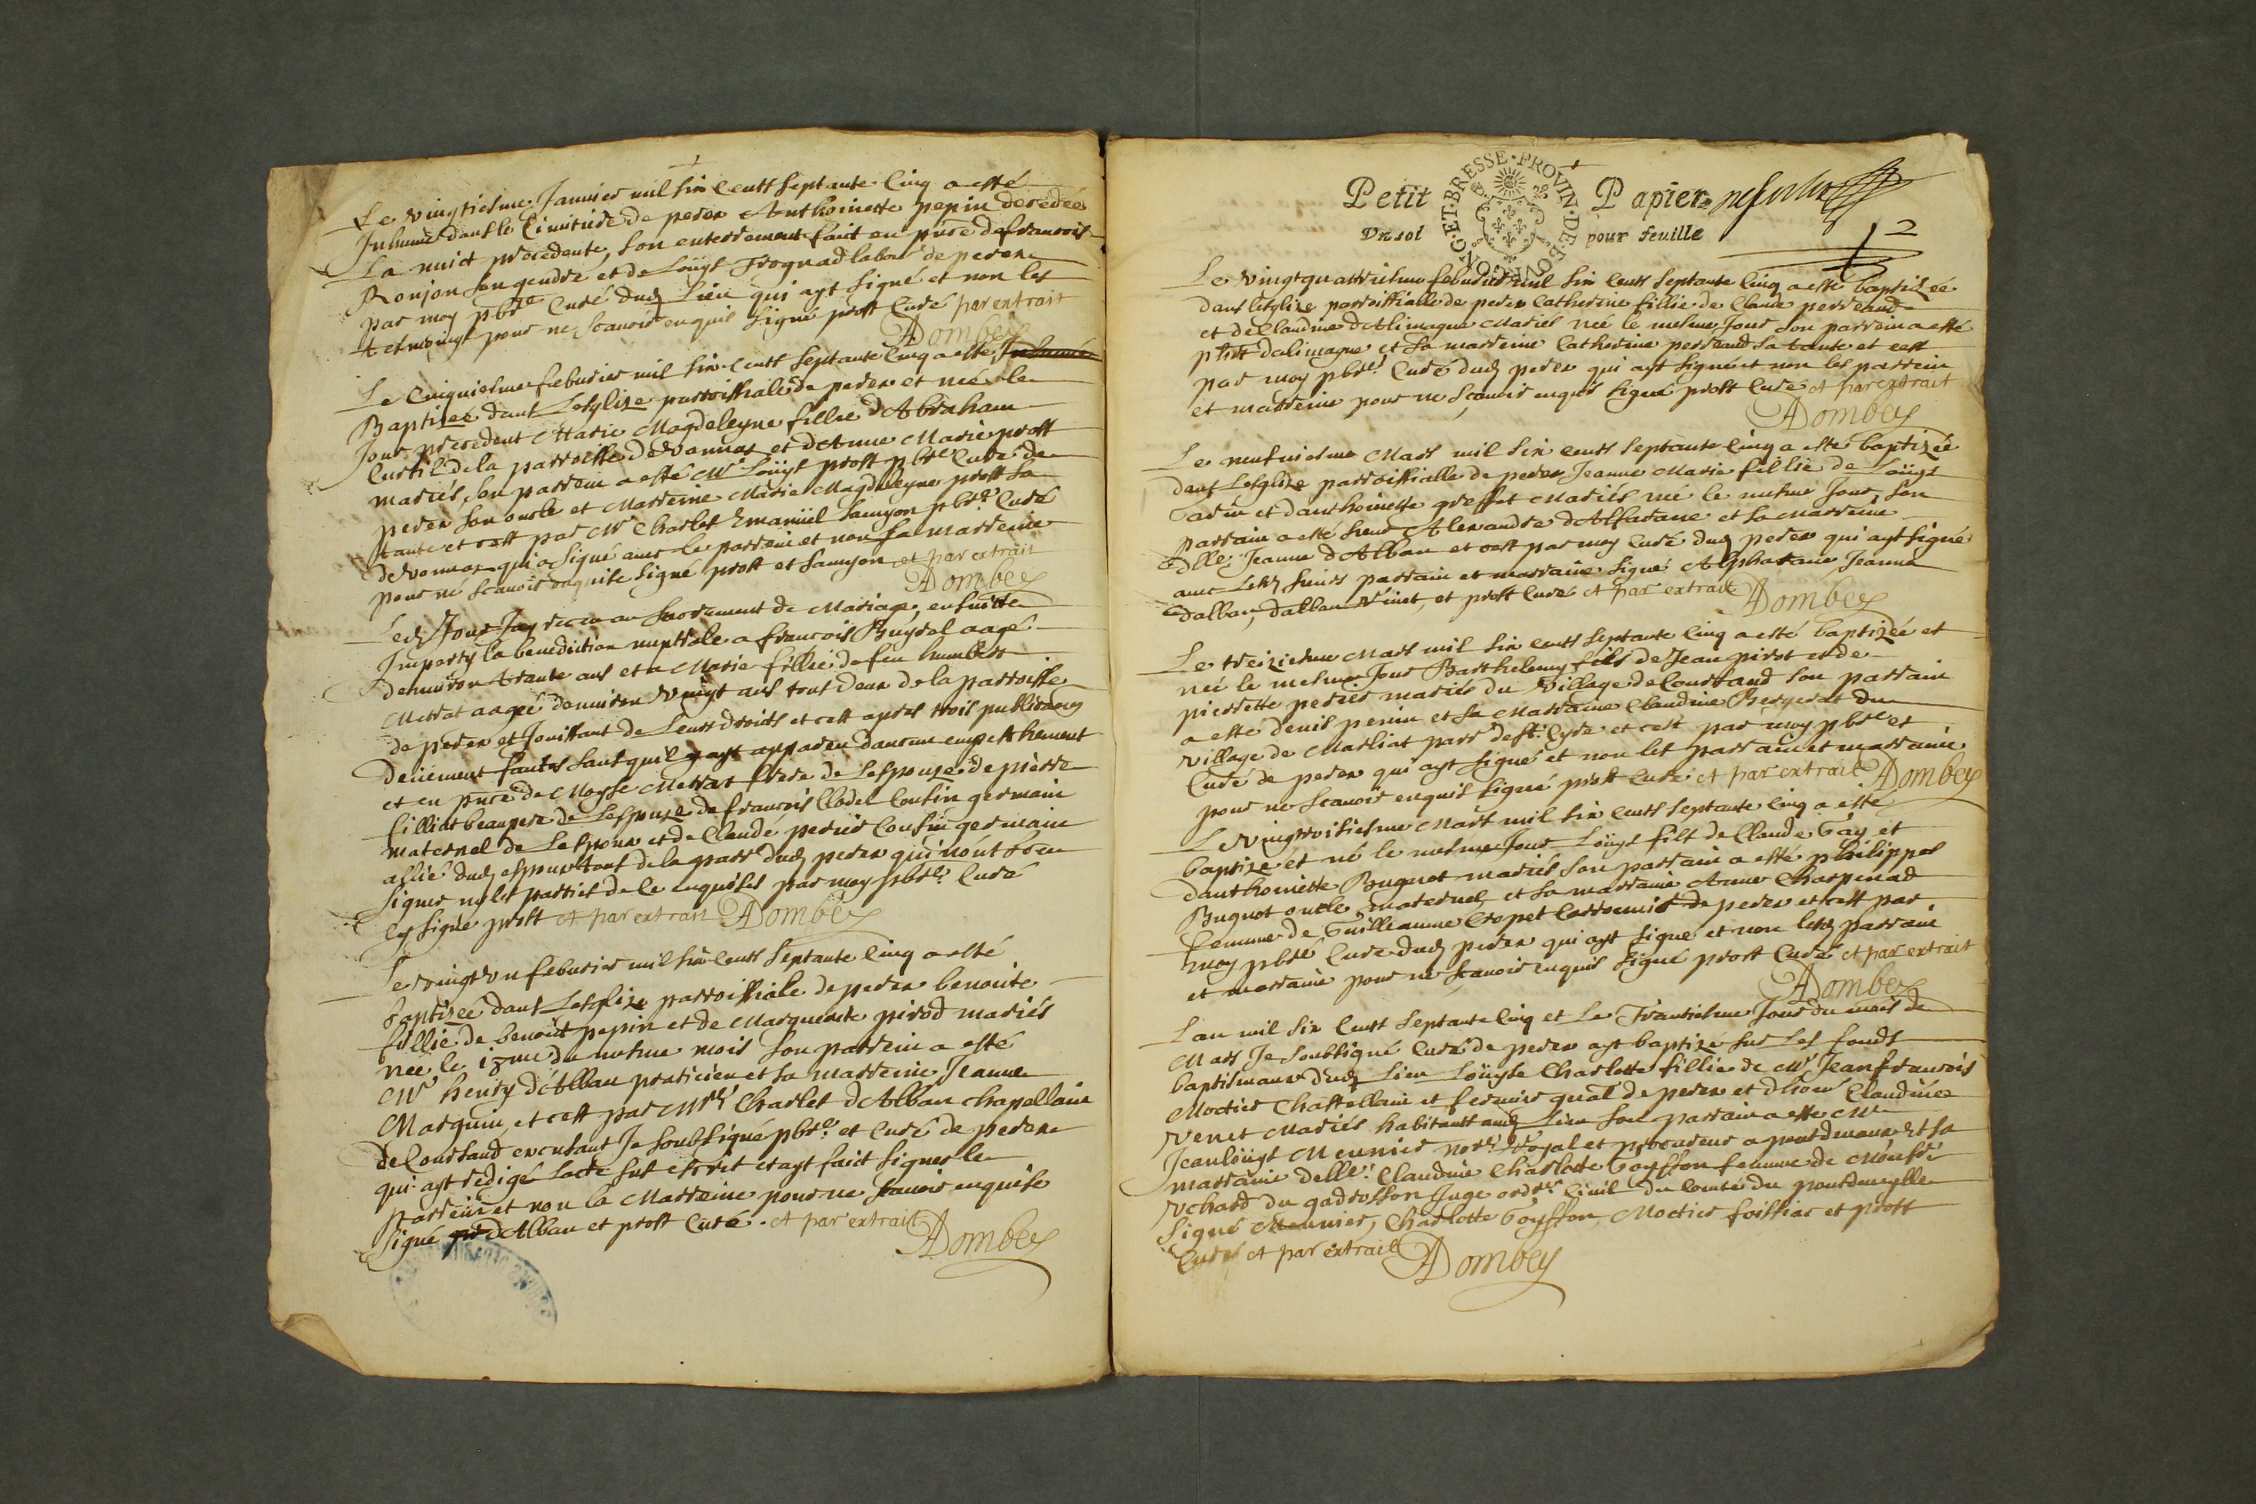 Le vingtiesme Januier mil six cents septante cinq a esté
Inhumé dans le Cimitiere de perex Anthoinette pepin decedée
La nuict precedente, son enterrement faict en pñce de francois
Ronjon son gendre et de Loüys Trognad labor de perex
par moy pbre Curé dudt Lieu qui ayt signé et non les
tesmoings pour ne scauoir enquis signé prost Curé par extrait
Dombey
Le Cinquiesme feburier mil six cents septante cinq a esté Inhumée
Baptizee dans Lesglize parroissiale de perex et née le
Jour precedent Marie Magdeleyne fillie dAbraham
Curtil de la parroisse de Vonnas et dAnne Marie prost
mariés, son parrein a esté Mr Loüys prost pbre Curé de
perex son oncle et Marreine Marie Magdeleyne prost sa
tante et cest par Mr Charles Emanüel Samyon pbre Curé
de Vonnas qui a signé auec le parrein et non la marreine
pour ne scauoir enquise signé prost et Samyon et par extrait
Dombey
Ledt Jour Jay receu au sacrement de Mariage, ensuitte
Imparty la benediction nuptiale a francois Buyred aagé
denuiron trante ans et a Marie fillie de feu humbert
Merrat aagée denuiron vingt ans tous deux de la parroisse
de perex et Jouissant de Leurs droicts et cest apres trois publications
deüement faictes sans quil y ayt appareu daucun empeschement
et en pñce de Moyse Merrat frere de Lespouze de pierre
filliat beaupere de Lespouze de francois Clodel Cousin germain
maternel de Lespoux et de Claude perier Cousin germain
allié dudt espoux tous de la parr dudt perex qui nont sceu
signer ny les parties de ce enquises par moy pbre Curé
Cy signé prost et par extrait Dombey
Le vingt vn feburier mil six cents septante cinq a esté
baptizée dans Lesglize parroissiale de perex benoite
fillie de benoict pepin et de Marguerite pirod mariés
née le 18me du mesme mois son parrein a esté
Mr henry dAlban praticien et sa marreine Jeanne
Marguin, et cest par Mre Charles dAlban Chapellain
de Coursand excusant Je soubsigné pbre et Curé de perex
qui ayt redigé lacte sus escrit et ayt faict signer le
parrein et non la Marreine pour ne scauoir enquise
signé dAlban et prost Curé. et par extrait
Dombey
PROVIN·DE·BOURGONG·ET·BRESSE
Petit Papier
Vn sol pour feuille
2
Le vingtquatriesme feburier mil six cents septante cinq a esté baptizée
dans lesglize parroissialle de perex Catherine fillie de Claude perreaud
et de Claudine dAlimagne Mariés née le mesme Jour son parrein a esté
phbt dalimagne et sa marreine Catherine perreaud sa tante et cest
par moy pbre Curé dudt perex qui ayt signé et non les parrein
et marreine pour ne scauoir enquis signé prost Curé et par extrait
Dombey
Le neufuiesme Mars mil six cents septante cinq a esté baptizée
dans Lesglize parroissialle de perex Jeanne Marie fillie de Loüys
et danthoinette greffet Mariés né le mesme Jour, son
parrain a esté sieur Alexandre dAlfarane et sa Marreine
dlle Jeanne dAlban et cest par moy Curé dudt perex qui ayt signé
auec Lesdt sieurs parrain et marraine signé Alpharane Jeanne
dalban, dalban Vinet, et prost Curé et par extrait Dombey
Le treiziesme Mars mil six cents septante cinq a esté baptizée et
née le mesme Jour Barthelemy fils de Jean pirot et de
pierrette perier mariés du Village de Coursand son parrain
a esté denis perrin et sa Marraine Claudine Bergerat du
village de Marliat parr de st Cyre et cest par moy pbre et
Curé de perex qui ayt signé et non les parrain et marraine
pour ne scauoir enquis signé prost Curé et par extrait Dombey
Le vingtroisiesme Mars mil six cents septante cinq a esté
baptizé et né le mesme Jour Loüys fils de Claude Gay et
danthoinette Buguet mariés son parrain a esté philippes
Buguet oncle maternel, et sa marraine Anne Charpenad
femme de Guilleaume Cropet de perex et cest par
moy pbre Curé dudt perex qui ayt signé et non lesdt parrain
et marraine pour ne scauoir enquis signé prost Curé et par extrait
Dombey
Lan mil six cents septante cinq et Le Trantiesme Jour du mois de
Mars Je soubsigné Curé de perex ayt baptizé sur Les fonds
baptismaux dudt Lieu Loüyse Charlotte fillie de Mr Jeanfrancois
Moctier Chastellain et fermier gnal de perex et dhon Claudine
Venet Mariés habitants audt Lieu son parrain a esté Mr
Jeanloüys Meunier nore Royal et procureur a pontdevaux Et sa
marraine delle Claudine Charlotte Goyffon femme de Monsr
du gadrosson Juge ordre Ciuil du Comté du pontdeveylle
Signé Meunier, Charlotte Goyffon, Moctier foissiac et prost
Curé et par extrait Dombey